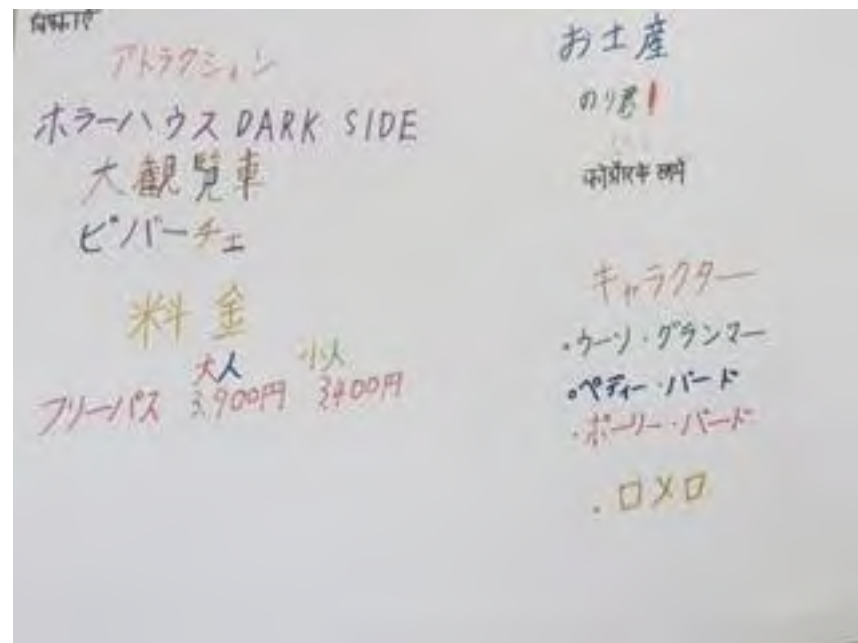 アトラクション
ホラーハウス DARK SIDE
大観覧車
ピバーチェ
料金
大人 小人
フリーパス 3,900円 3400円
お土産
のり君!
キャラクター
・ウーソ・グランマー
・ペディー・バード
・ポーリー・バード
・ロメロ